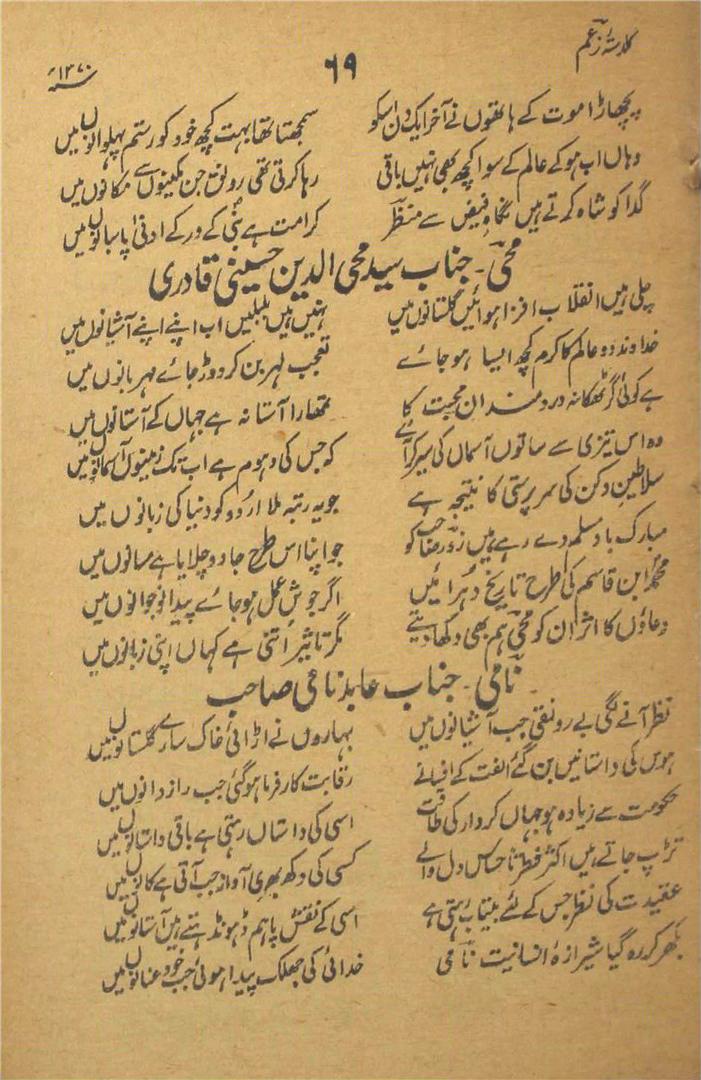 گلدستہ بزم عجم
۶۹
۱۳۷۰ سنہ
پچھاڑا موت کے ہاتھوں نے آخر ایک دن اسکو سمجھتا تھا بہت کچھ خود کو رستم پہلوانوں میں
وہاں اب ہو کے عالم کے سوا کچھ بھی نہیں باقی رہا کرتی تھی رونق جن مکینوں سے مکانوں میں
گدا کو شاہ کرتے ہیں نگاہِ فیض سے منظر کرامت ہے نبی کے در کے ادنیٰ پاسبانوں میں
محی ۔ جناب سید محی الدین حسینی قادری
چلی ہیں انقلاب افزا ہوائیں گلستانوں میں نہیں ہیں بلبلیں اب اپنے اپنے آشیانوں میں
خداوندِ دو عالم کا کرم کچھ ایسا ہو جائے تعجب لہر بن کر دوڑ جائے مہربانوں میں
ہے کوئی گر ٹھکانہ دردمندانِ محبت کا تمھارا آستانہ ہے جہاں کے آستانوں میں
وہ اس تیزی سے ساتوں آسماں کی سیر کر آئے کہ جس کی دہوم ہے اب تک زمینوں آسمانوں میں
سلاطینِ دکن کی سرپرستی کا نتیجہ ہے جو یہ رتبہ ملا اردو کو دنیا کی زبانوں میں
مبارک باد مسلم دے رہے ہیں زور صاحب کو جو اپنا اس طرح جادو چلایا ہے میانوں میں
محمد ابن قاسم کی طرح تاریخ دہرائیں اگر جوشِ عمل ہو جائے پیدا نوجوانوں میں
دعاؤں کا اثر ان کو محی ہم بھی دکھا دیتے مگر تاثیر اتنی ہے کہاں اپنی زبانوں میں
نامی ۔ جناب عابد نامی صاحب
نظر آنے لگی بے رونقی جب آشیانوں میں بہاروں نے اڑائی خاک سارے گلستانوں میں
ہوس کی داستانیں بن گئے الفت کے افسانے رقابت کارفرما ہو گئی جب رازدانوں میں
حکومت سے زیادہ ہو جہاں کردار کی طاقت اسی کی داستاں رہتی ہے باقی داستانوں میں
تڑپ جاتے ہیں اکثر فطرتاً حساس دل والے کسی کی دکھ بھری آواز جب آتی ہے کانوں میں
عقیدت کی نظر جس کے لئے بیتاب رہتی ہے اسی کے نقشِ پا ہم ڈہونڈتے ہیں آستانوں میں
بکھر کر رہ گیا شیرازۂ انسانیت نامی خدائی کی جھلک پیدا ہوئی جب خود عنانوں میں